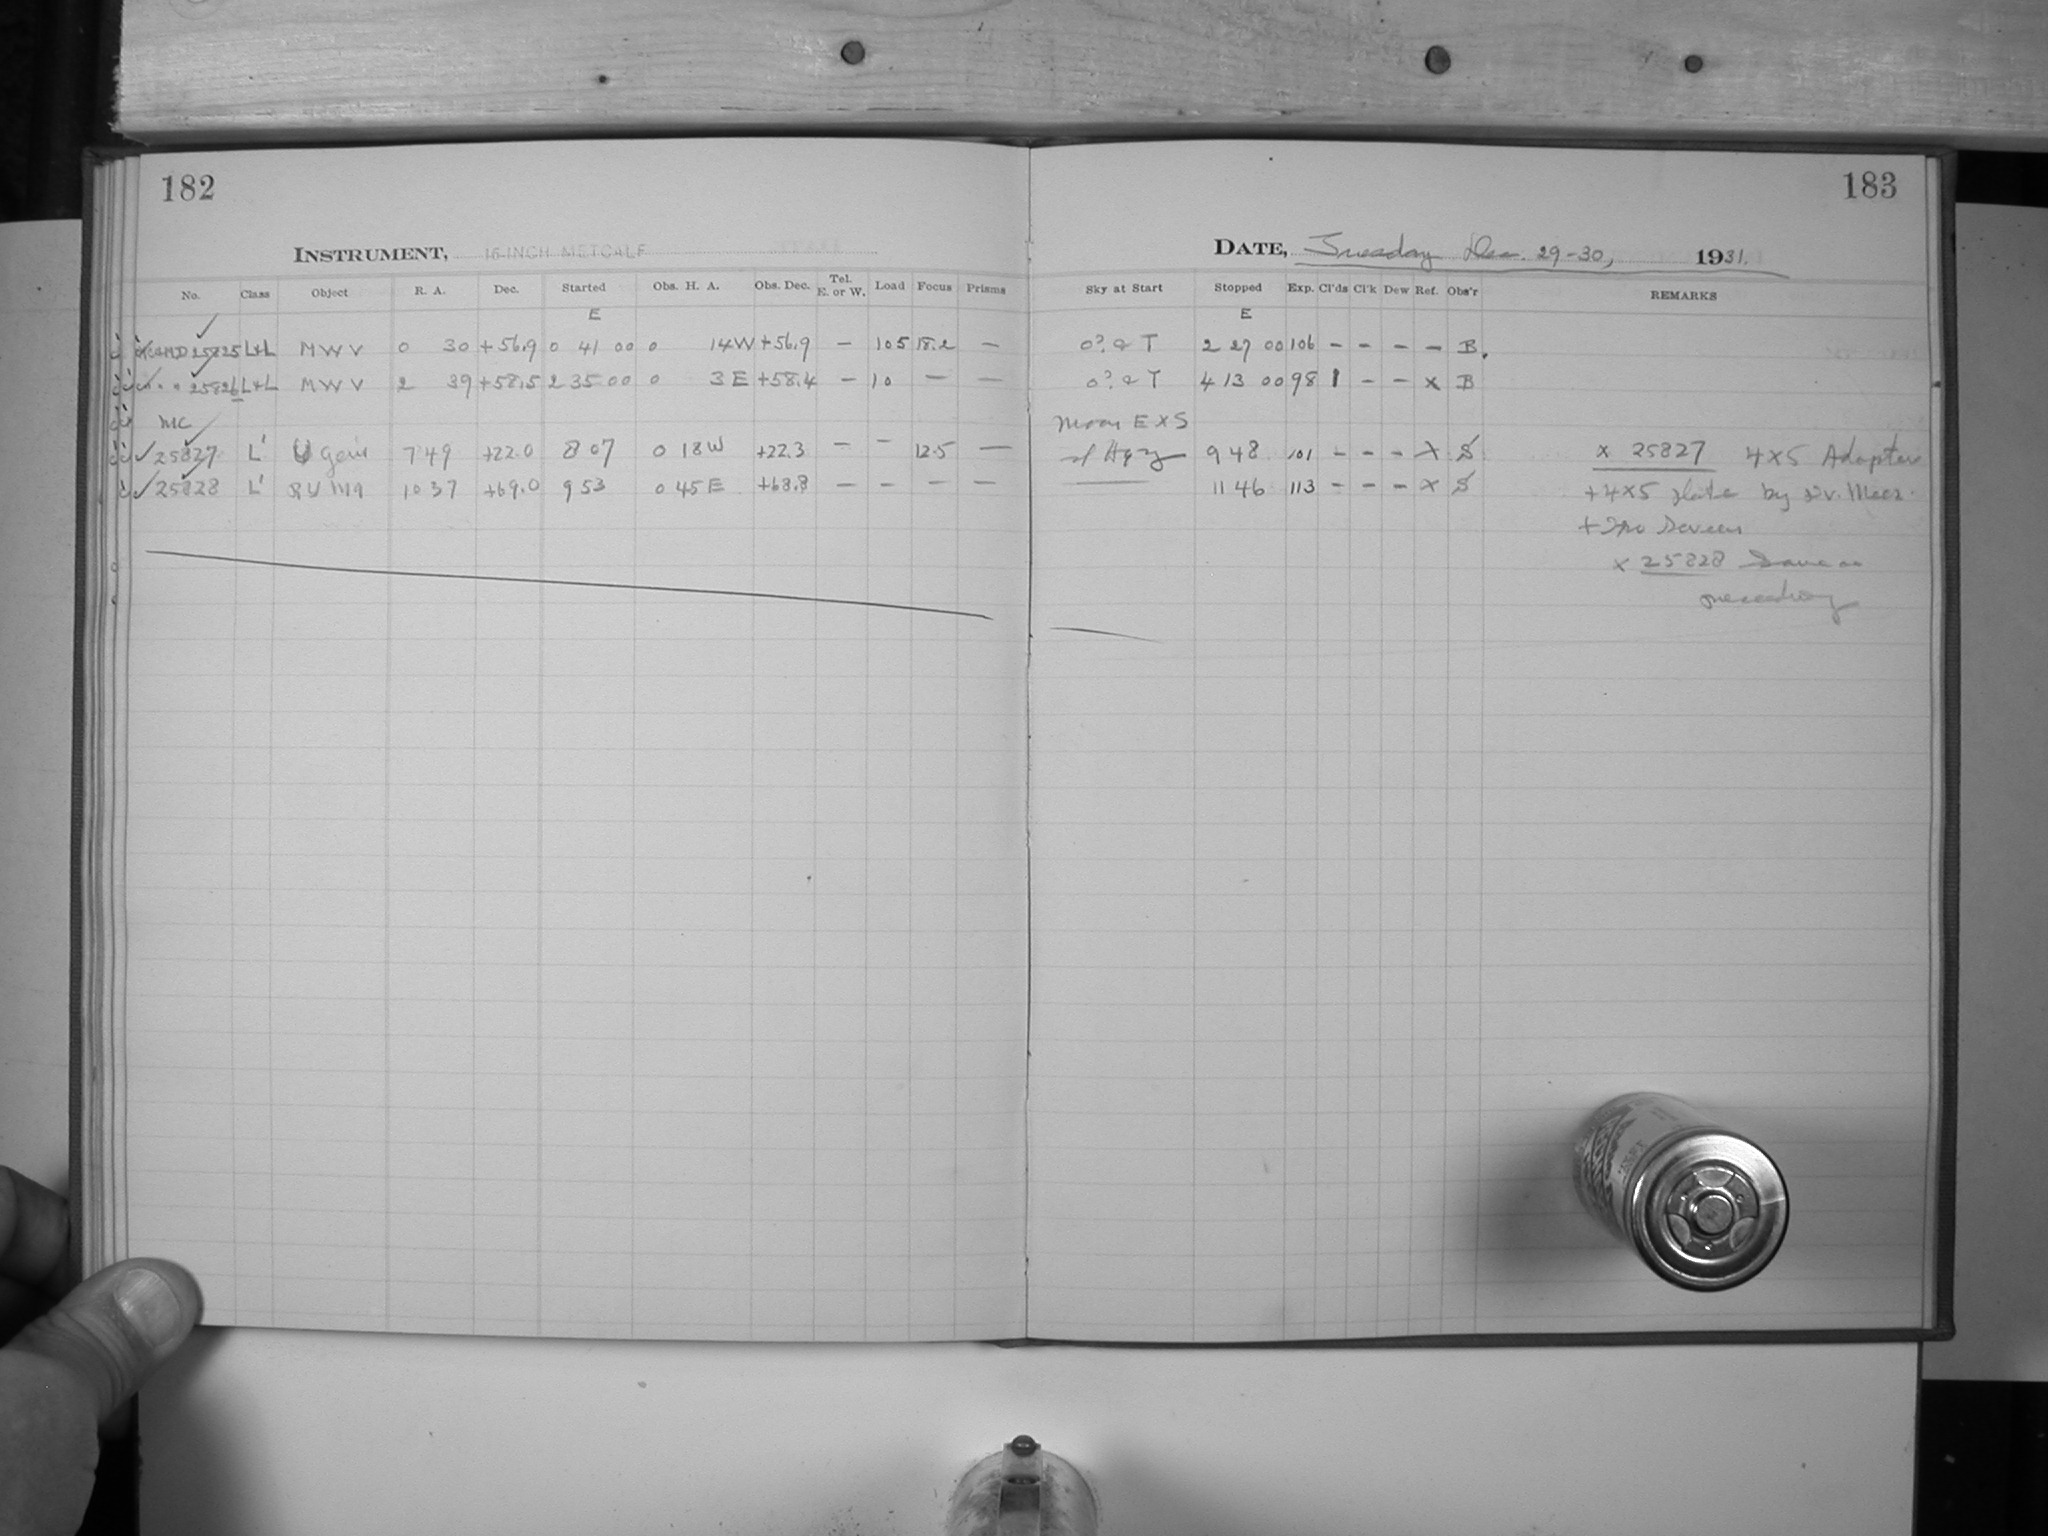 182
183
INSTRUMENT, 16-INCH METCALF
DATE, Tuesday Dec. 29-30, 1931.
No. Class Object R. A. Dec. Started Obs. H. A. Obs. Dec. Tel. E. or W. Load Focus Prisms Sky at Start Stopped Exp. Cl'ds Cl'k Dew Ref. Obs'r REMARKS
E E
25825 L+L MWV 0 30 +56.9 0 41 00 0 14W +56.9 — 105 18.2 — 0? & T 2 27 00 106 - - - - B.
" " 25826 L+L MWV 2 39 +58.5 2 35 00 0 3E +58.4 — 10 — — 0? & T 4 13 00 98 1 - - x B
MC Moon E x S
25827 L' U Gem 7 49 +22.0 8 07 0 18W +22.3 — — 12.5 — sl Hazy 9 48 101 - - - x S x 25827 4x5 Adapter
25828 L' 10 37 +69.0 9 53 0 45E +68.8 — — — — 11 46 113 - - - x S +4x5 plate by Dr.
+ no Screen
x 25828 Same as
preceding